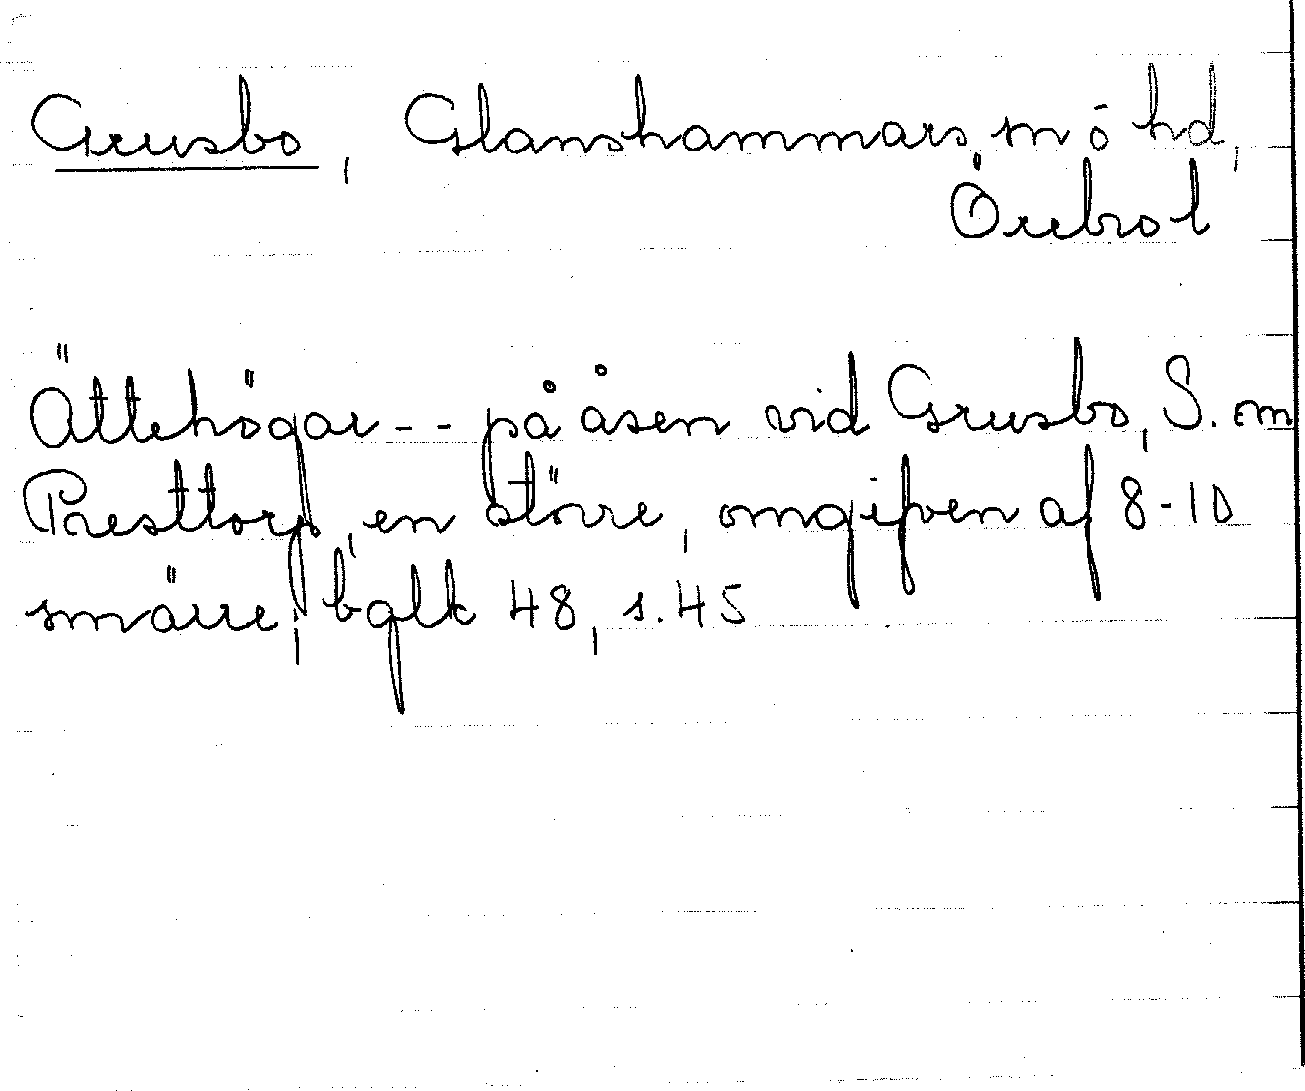 Grusbo, Glanshammars sn ō hd,
Örebro l
Ättehögar -- på åsen vid Grusbo, S. om
Presttorp, en större, omgifven af 8-10
smärre; bglk 48, s. 45